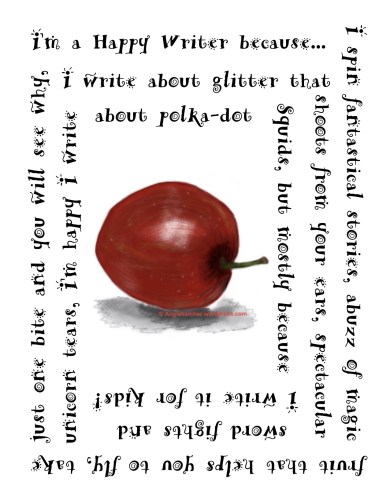 I'm a Happy Writer because...
I spin fantastical stories, abuzz of magic
fruit that helps you to fly, take
just one bite and you will see why,
I write about glitter that
shoots from your ears, spectacular
sword fights and
unicorn tears, I'm happy I write
about polka-dot
Squids, but mostly because
I write it for kids!